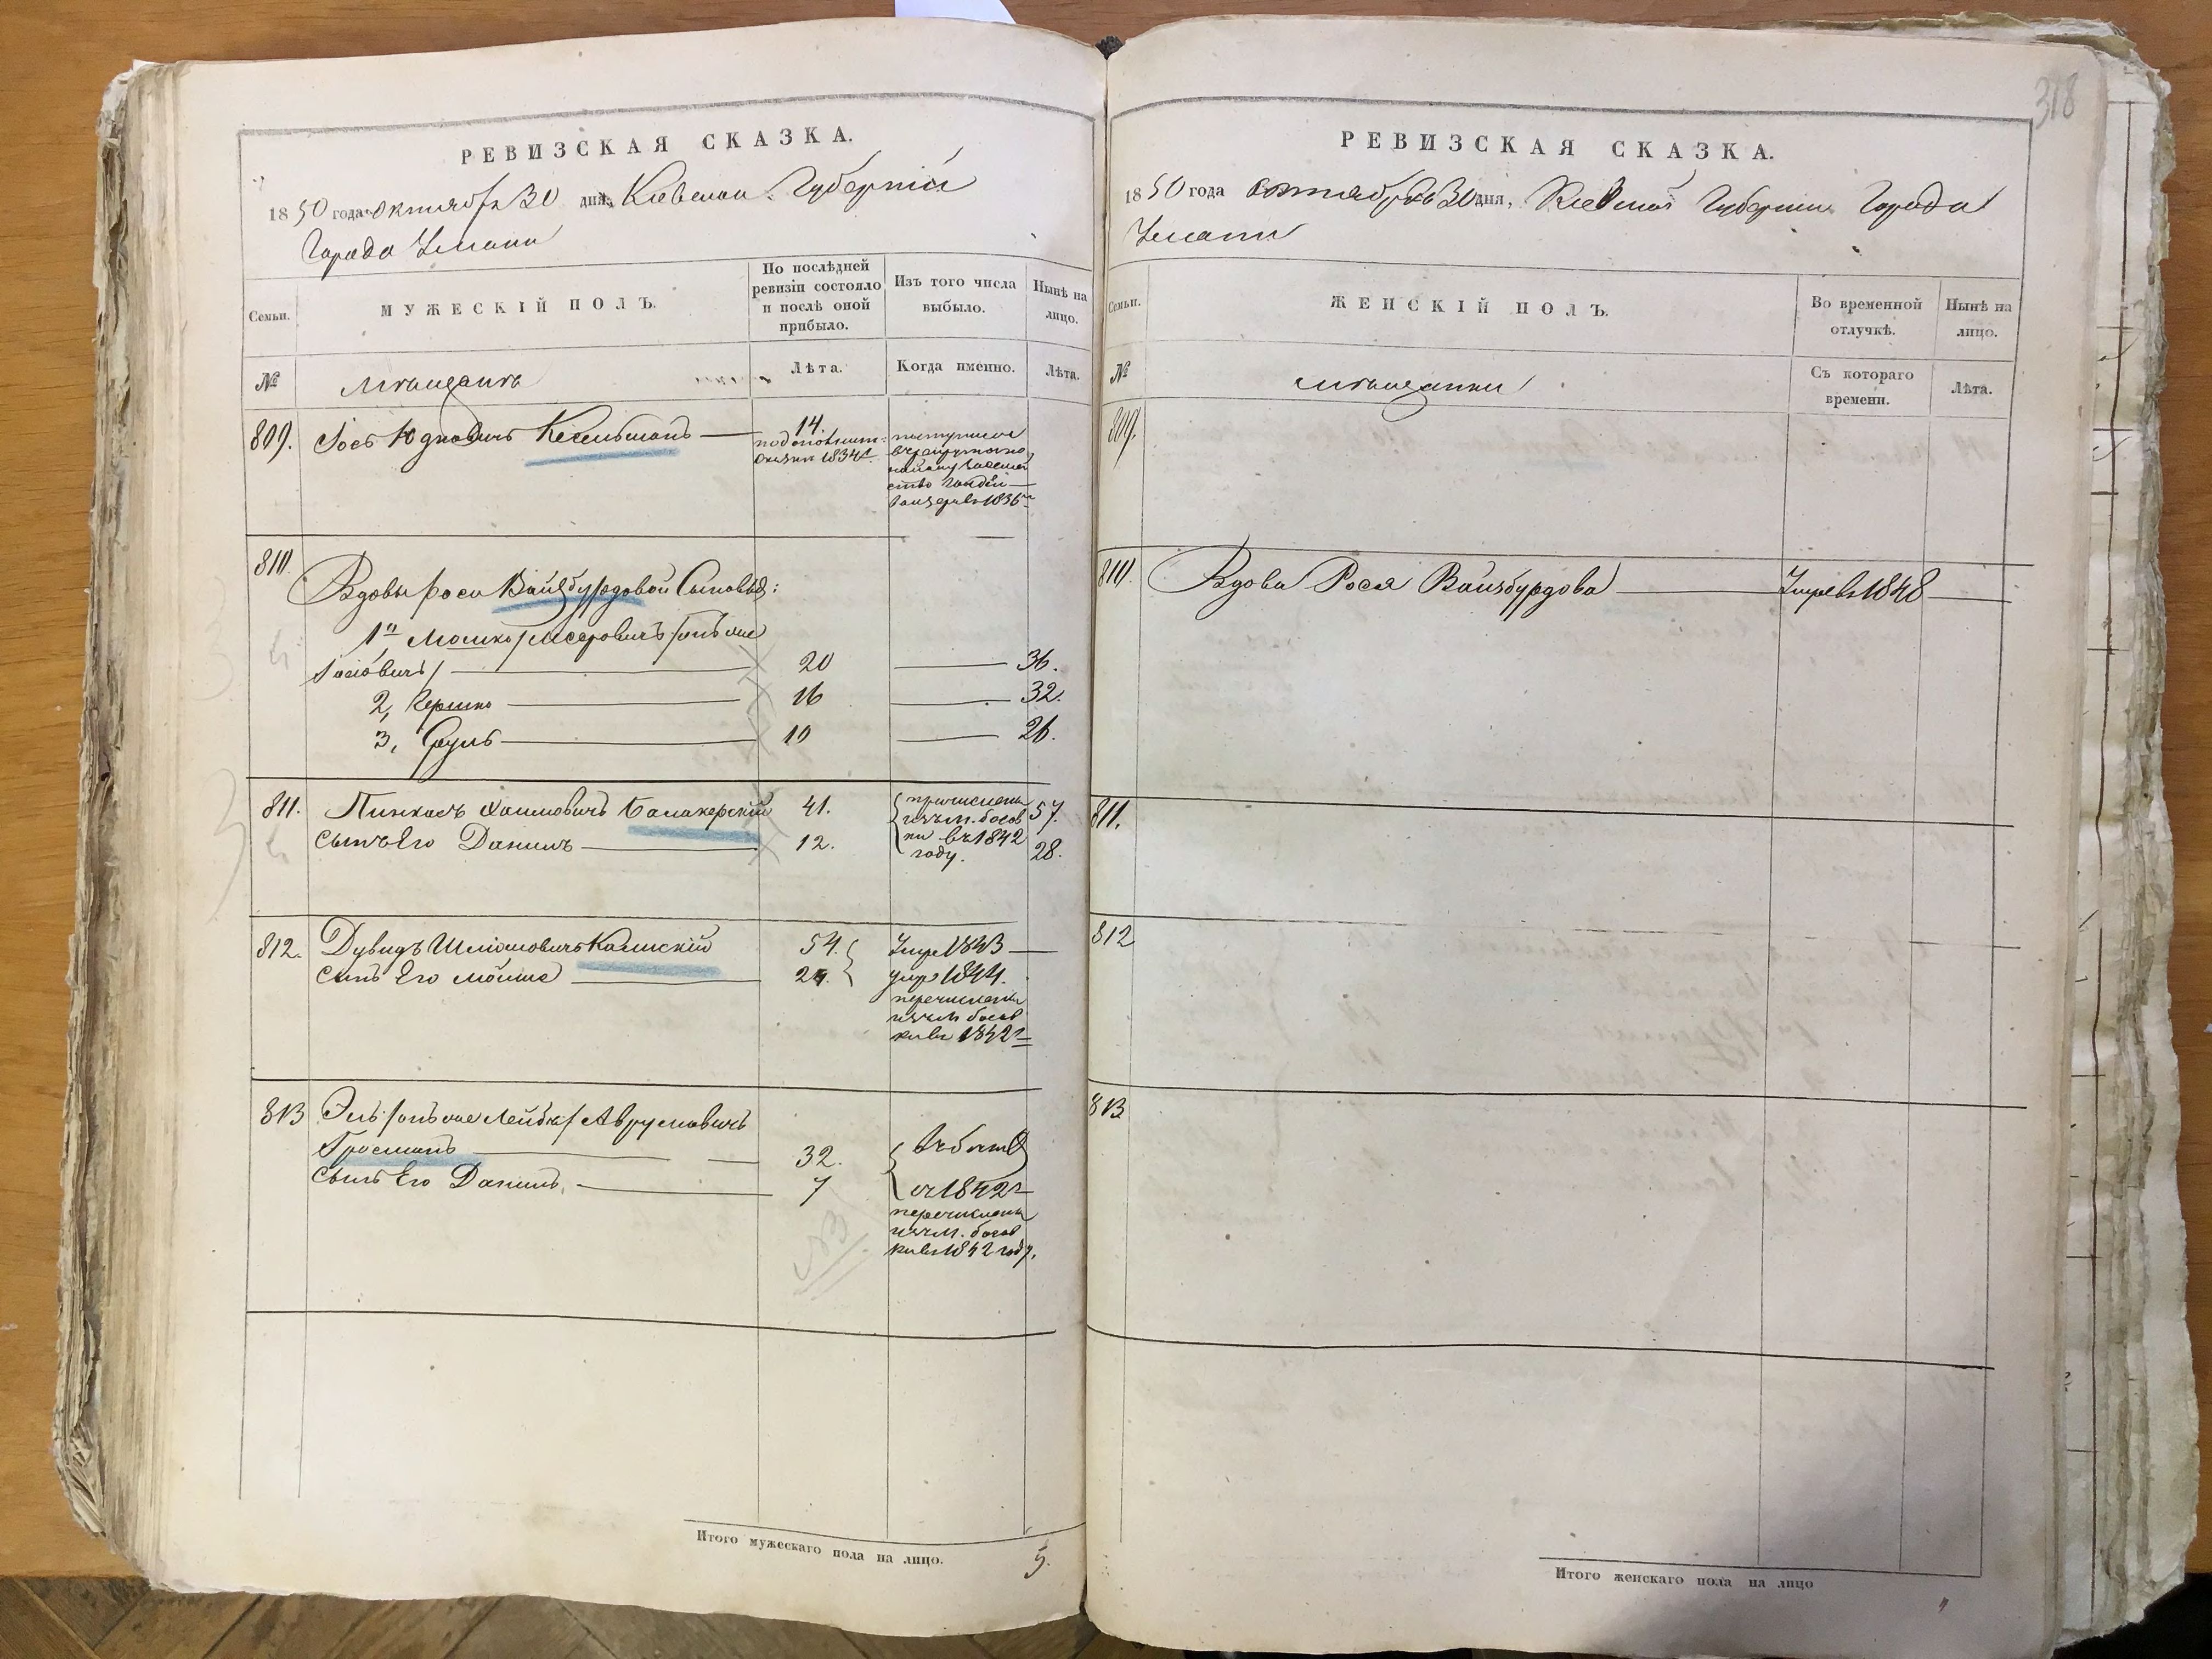 РЕВИЗСКАЯ СКАЗКА.
1850 года октября 30 дня, Киевской Губернии
Города Умани
Семьи.
МУЖЕСКІЙ ПОЛЪ.
По послѣдней ревизіи состояло и послѣ оной прибыло.
Изъ того числа выбыло.
Нынѣ на лицо.
№
Мѣщанѣ
Лѣта.
Когда именно.
Лѣта.
809. Іось Юдковичъ Кесельманъ
14.
сказки 1834 г.
1836 г.
810. Вдовы Роси Вайзбурдовой Сыновья:
1й Мошко /Лейзеровичъ/ онъ же
Іосіовичъ/ 20 36.
2, Гершко 16 32.
3, Сруль 10 26.
811. Пинкасъ Хаимовичъ Балакерскій 41. 57.
сынъ Его Данилъ 12. 28.
причислены
изъ м. босов
ки въ 1842
году.
812. Дувидъ Шліомовичъ Калискій 54. Умре 1843
сынъ Его Мошко 24. умре 1844.
перечислены
изъ м босов
ки въ 1842 г
813 Эль /онъ же Лейбка/ Аврумовичъ
Гросманъ 32.
сынъ Его Данилъ, 7
съ 1842 г
перечислены
изъ м. босов
ки въ 1842 году.
Итого мужескаго пола на лицо. 5.
318
РЕВИЗСКАЯ СКАЗКА.
1850 года октября 30 дня, Киевской Губернии Города
Умани
Семьи.
ЖЕНСКІЙ ПОЛЪ.
Во временной отлучкѣ.
Нынѣ на лицо.
№
мѣщанки
Съ котораго времени.
Лѣта.
809.
810. Вдова Рося Вайзбурдова Умре въ 1848
811.
812
813
Итого женскаго пола на лицо